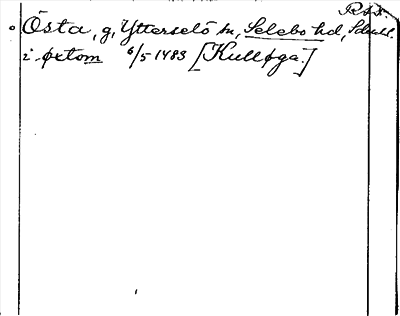 RSS.
Östa, g, Ytterselö sn, Selebo hd, Sdml.
i øxtom 6/5 1483 [Kulløga.]